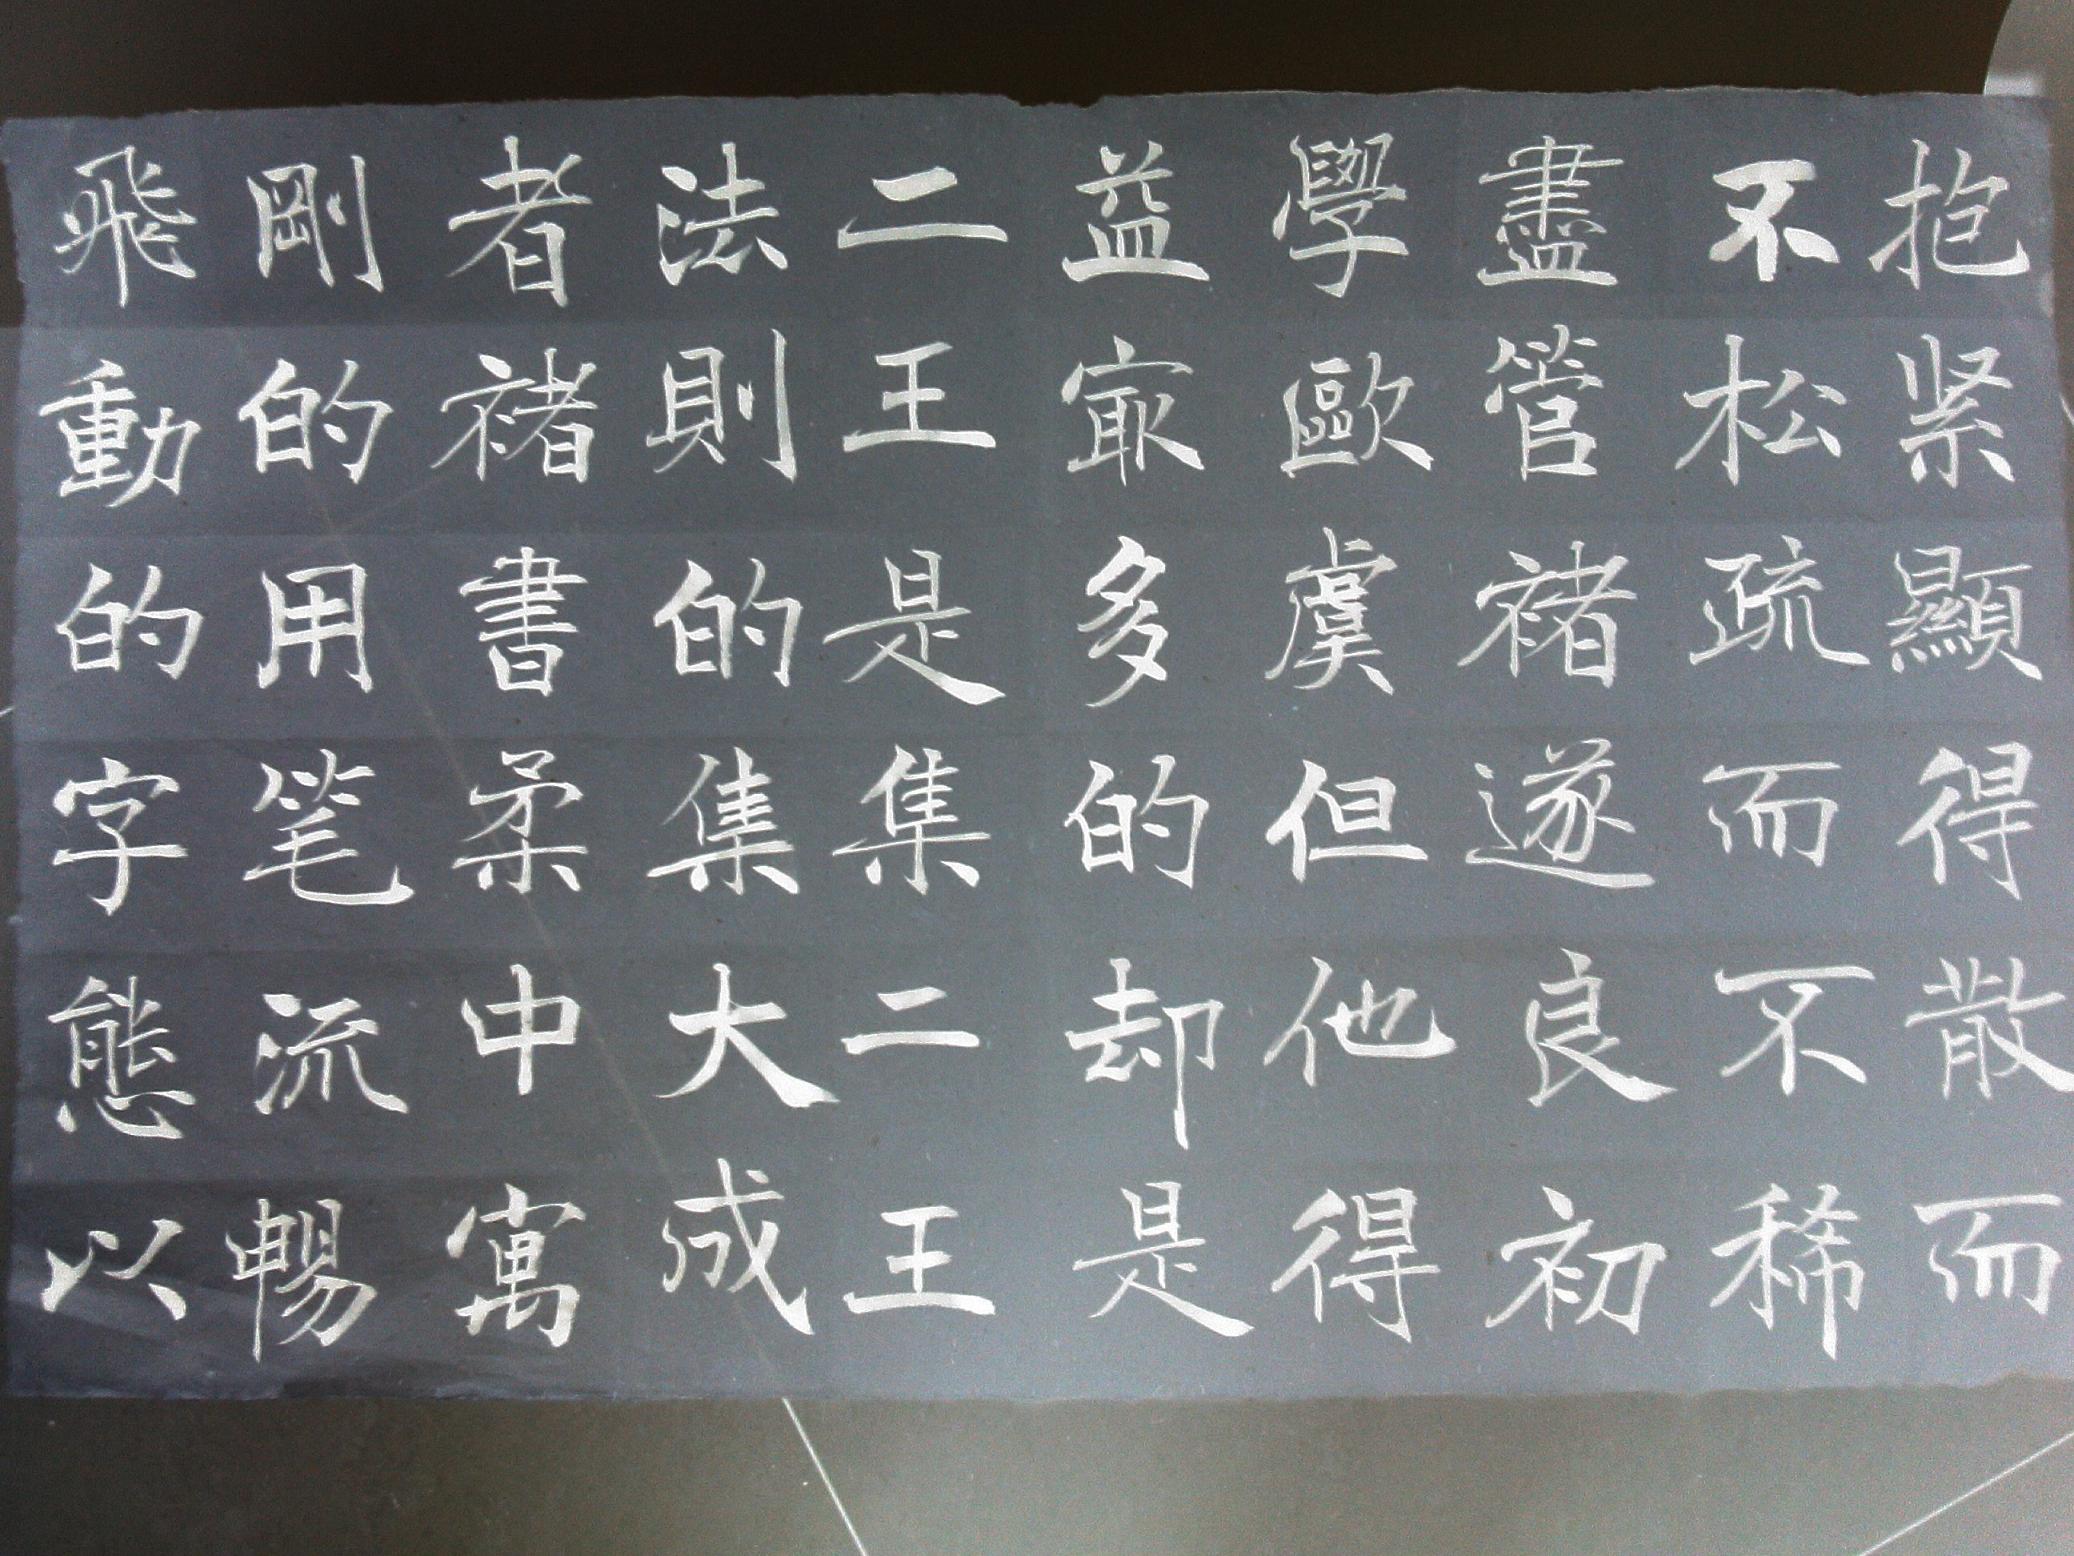 抱紧顯得散而
不松疏而不稀
盡管褚遂良初
學歐虞但他得
益㝡多的却是
二王是集二王
法則的集大成
者褚書柔中寓
剛的用笔流暢
飛動的字態以